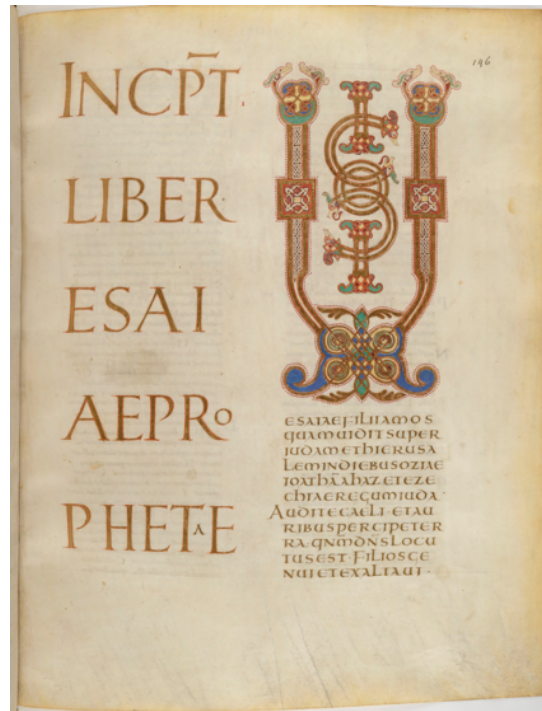 INCPT̄
LIBER
ESAI
AEPRO
PHETAE
196
VISIO
ESAIAE FILII AMOS
QUAM UIDIT SUPER
IUDAM ET HIERUSA
LEM IN DIEBUS OZIAE
IOATHĀ AHAZ ET EZE
CHIAE REGUM IUDA·
AUDITE CAELI ET AU
RIBUS PERCIPE TER
RA· QNM̄ DN̄S LOCU
TUS EST· FILIOS GE
NUI ET EXALTAUI·